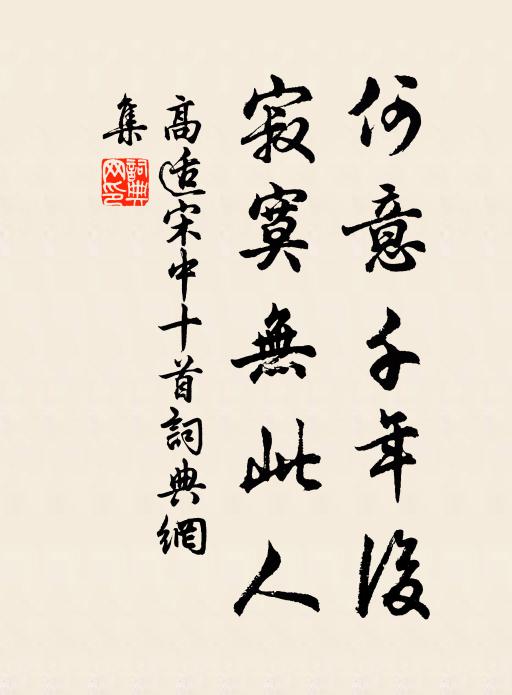 何意千年後
寂寞無此人
高适宋中十首詞典網
集
詞典
网印